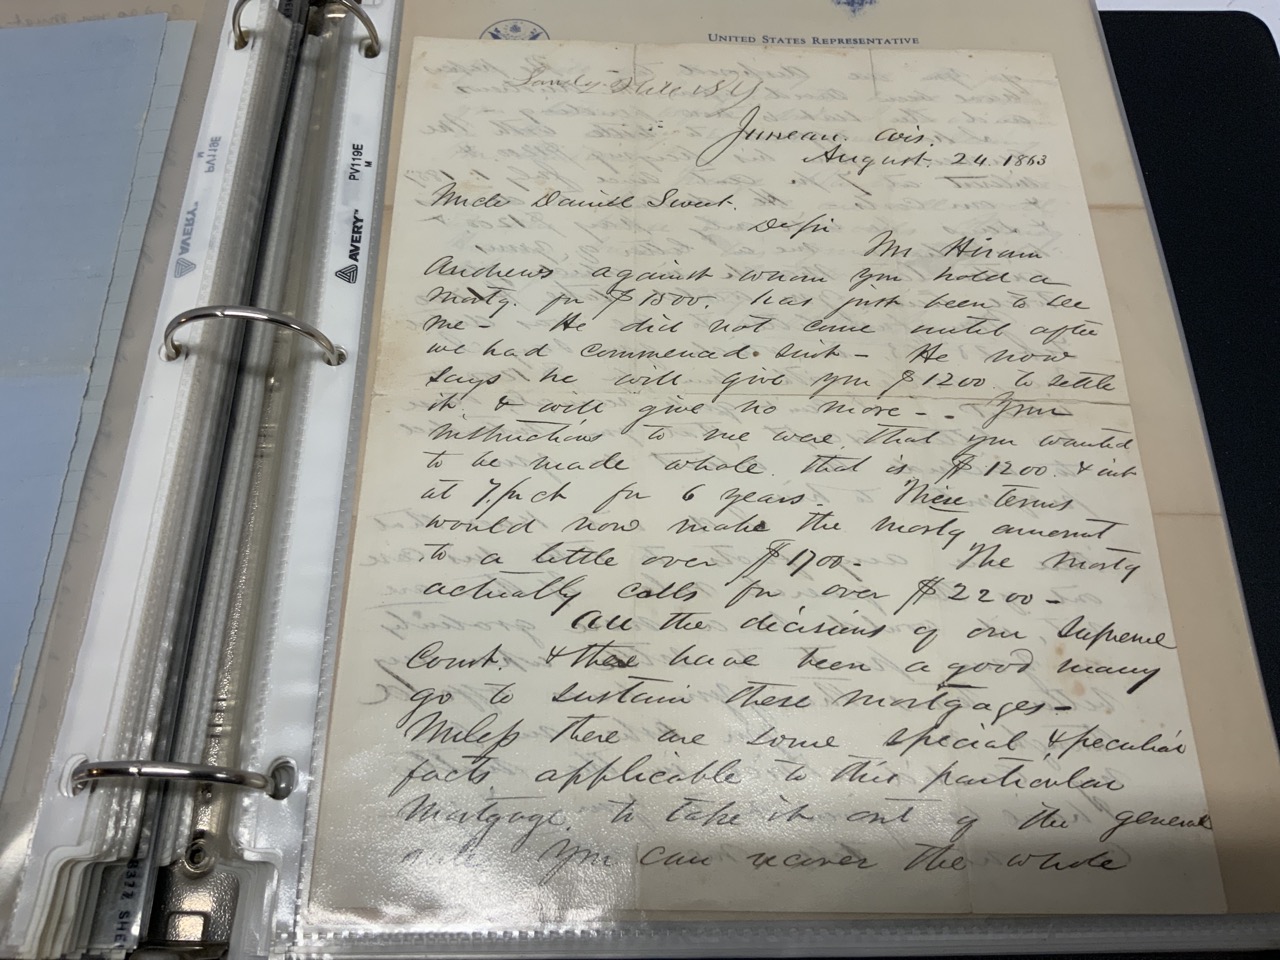 UNITED STATES REPRESENTATIVE
Juneau. Wis.
August. 24. 1863
Uncle Daniell Sweet.
Mr Hiram
Andrews against whom you hold a
mortg. for $1500. has just been to see
me - He did not come until after
we had commenced suit - He now
says he will give you $1200 to settle
it. & will give no more - . Your
instructions to me were that you wanted
to be made whole. that is $1200. & int
at 7 pr ct for 6 years. These terms
would now make the mortg amount
to a little over $1700 - The mortg
actually calls for over $2200 -
All the decisions of our Supreme
Court. & there have been a good many
go to sustain these mortgages -
Unless there are some special & peculiar
facts applicable to this particular
mortgage. to take it out of the general
rule you can recover the whole
AVERY™
PV119E
M